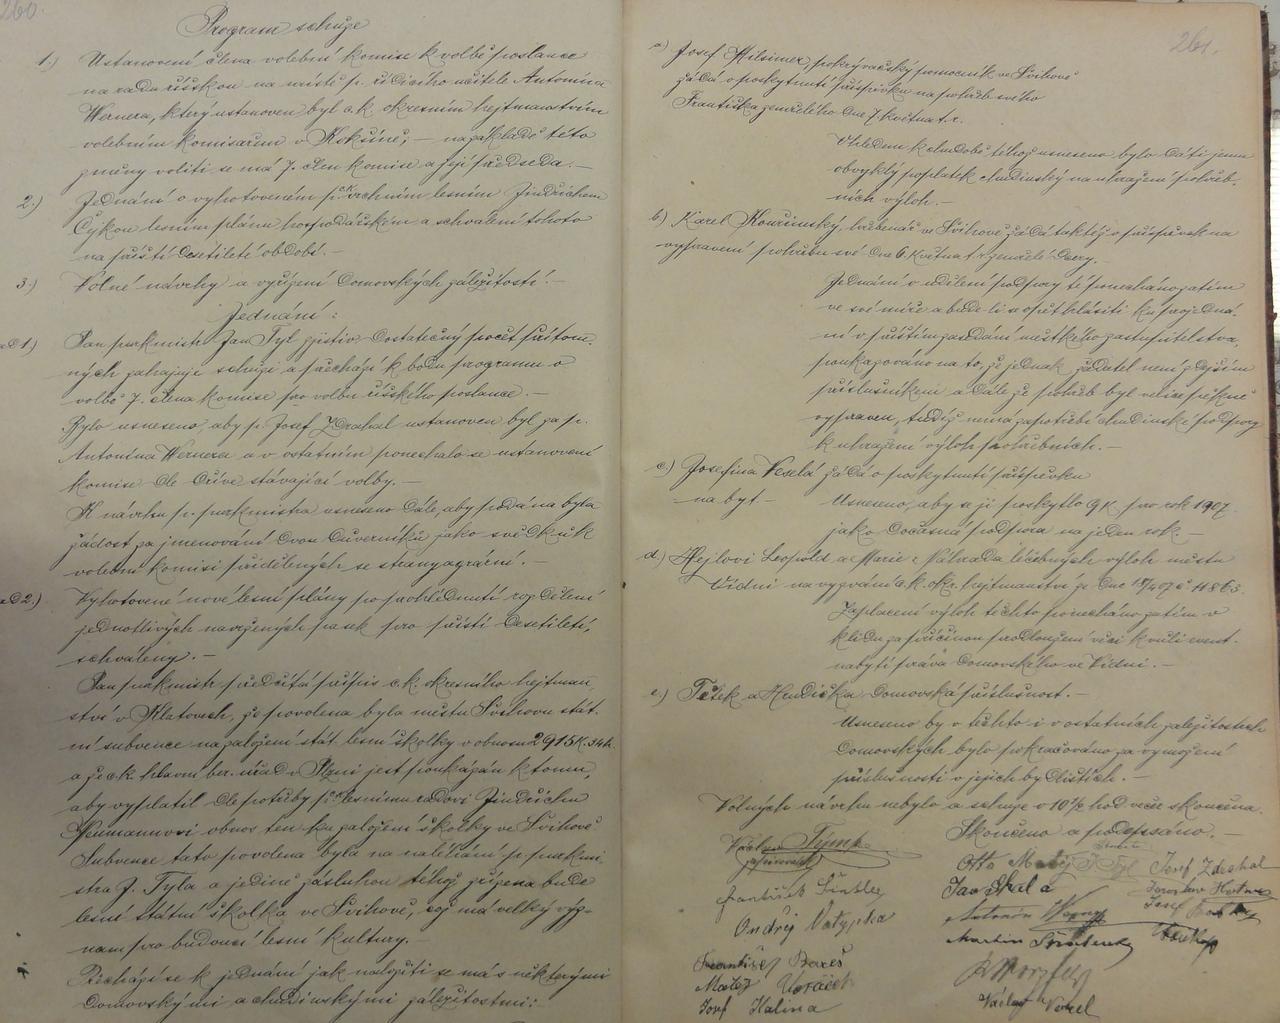 260.
Program schůze
1.) Ustanovení člena volební komise k volbě poslance
na radu říšskou na místě p. řídícího učitele Antonína
Wernera, který ustanoven byl c.k. okresním hejtmanstvím
volebním komisařem v Kokšíně; – na základě této
změny voliti se má 7. člen komise a její předseda. –
2.) Jednání o vyhotoveném p. c.k. vrchním lesním Jindřichem
Čykou lesním pláne hospodářském a schválení tohoto
na příští desetileté období. –
3.) Volné návrhy a vyřízení domovských záležitostí. –
Jednání:
ad 1.) Pan purkmistr Jan Tyl zjistiv dostatečný počet přítom-
ných zahajuje schůzi a přechází k bodu programu o
volbě 7. člena komise pro volbu říšského poslance. –
Bylo usneseno, aby p. Josef Zdrahal ustanoven byl za p.
Antonína Wernera a v ostatním ponechalo se ustanovení
komise dle dříve stávající volby. –
K návrhu p. purkmistra usneseno dále, aby podána byla
žádost za jmenování dvou důvěrníků jako svědků k
volební komisi přidělených se strany agrární. –
ad 2.) Vyhotovené nové lesní plány po prohlédnutí rozdělení
jednotlivých navržených pasek pro příští desetiletí,
schváleny. –
Pan purkmistr předčítá přípis c.k. okresního hejtman-
ství v Klatovech, že povolena byla městu Švihovu stát-
ní subvence na založení stát. lesní školky v obnosu 2915 K. 34 h.
a že c.k. hlavní ber. úřad v Plzni jest poukázán k tomu,
aby vyplatil dle potřeby p. c.k. lesnímu radovi Jindřichu
Neumannovi obnos ten ku založení školky ve Švihově
Subvence tato povolena byla na naléhání p. purkmi-
stra J. Tyla a jedině zásluhou téhož zřízena bude
lesní státní školka ve Švihově, což má velký výz-
nam pro budoucí lesní kultury. –
Přechází se k jednání jak naložiti se má s některými
domovskými a chudinskými záležitostmi:
261.
a) Josef Hilsimer, pokrývačský pomocník ve Švihově
žádá o poskytnutí příspěvku na pohřeb svého
Františka zemřelého dne 7. května t.r.
Vzhledem k chudobě téhož usneseno bylo dáti jemu
obvyklý poplatek chudinský na uhražení pohřeb-
ních výloh. –
b) Karel Kouřimský, hřebenář ve Švihově žádá taktéž o příspěvek na
vypravení pohřbu své dne 6. května t.r. zemřelé dcery. –
Jednání o udělení podpory té ponecháno zatím
ve své míře a bude-li se opět hlásiti ku projedná-
ní v příštím zasedání městkého zastupitelstva,
poukazováno na to, že jednak žadatel není zdejším
příslušníkem a dále že pohřeb byl velice pěkně
vypraven, tudíž nemá zapotřebí chudinské podpory
k uhražení výloh pohřebních. –
c) Josefina Veselá žádá o poskytnutí příspěvku
na byt. – Usneseno, aby se jí poskytlo 9 K pro rok 1907
jako dočasná podpora na jeden rok. –
d) Hejlovi Leopold a Marie: Náhrada léčebných výloh městu
Vídni na vyzvání c.k. okr. hejtmanství ze dne 18/4 07 č 11863.
Zaplacení výloh těchto ponecháno zatím v
klidu za příčinou prodloužení věci k vůli event.
nabytí práva domovského ve Vídni. –
e.) Tětek a Hrdička domovská příslušnost. –
Usneseno by v těchto i v ostatních záležitostech
domovských bylo pokračováno za vymožení
příslušnosti v jejich bydlištích. –
Volných návrhu nebylo a schuze v 10 ½ hod večer skončena.
Skončeno a podepsáno. –
Václav Týmk
Otto Matěj J Tyl Josef Zdrahal
František Šindler Jan Skala
Ondřej Votypka Antonín
Martin
František Bareš
Matěj Voráček
Josef Kalina Václav